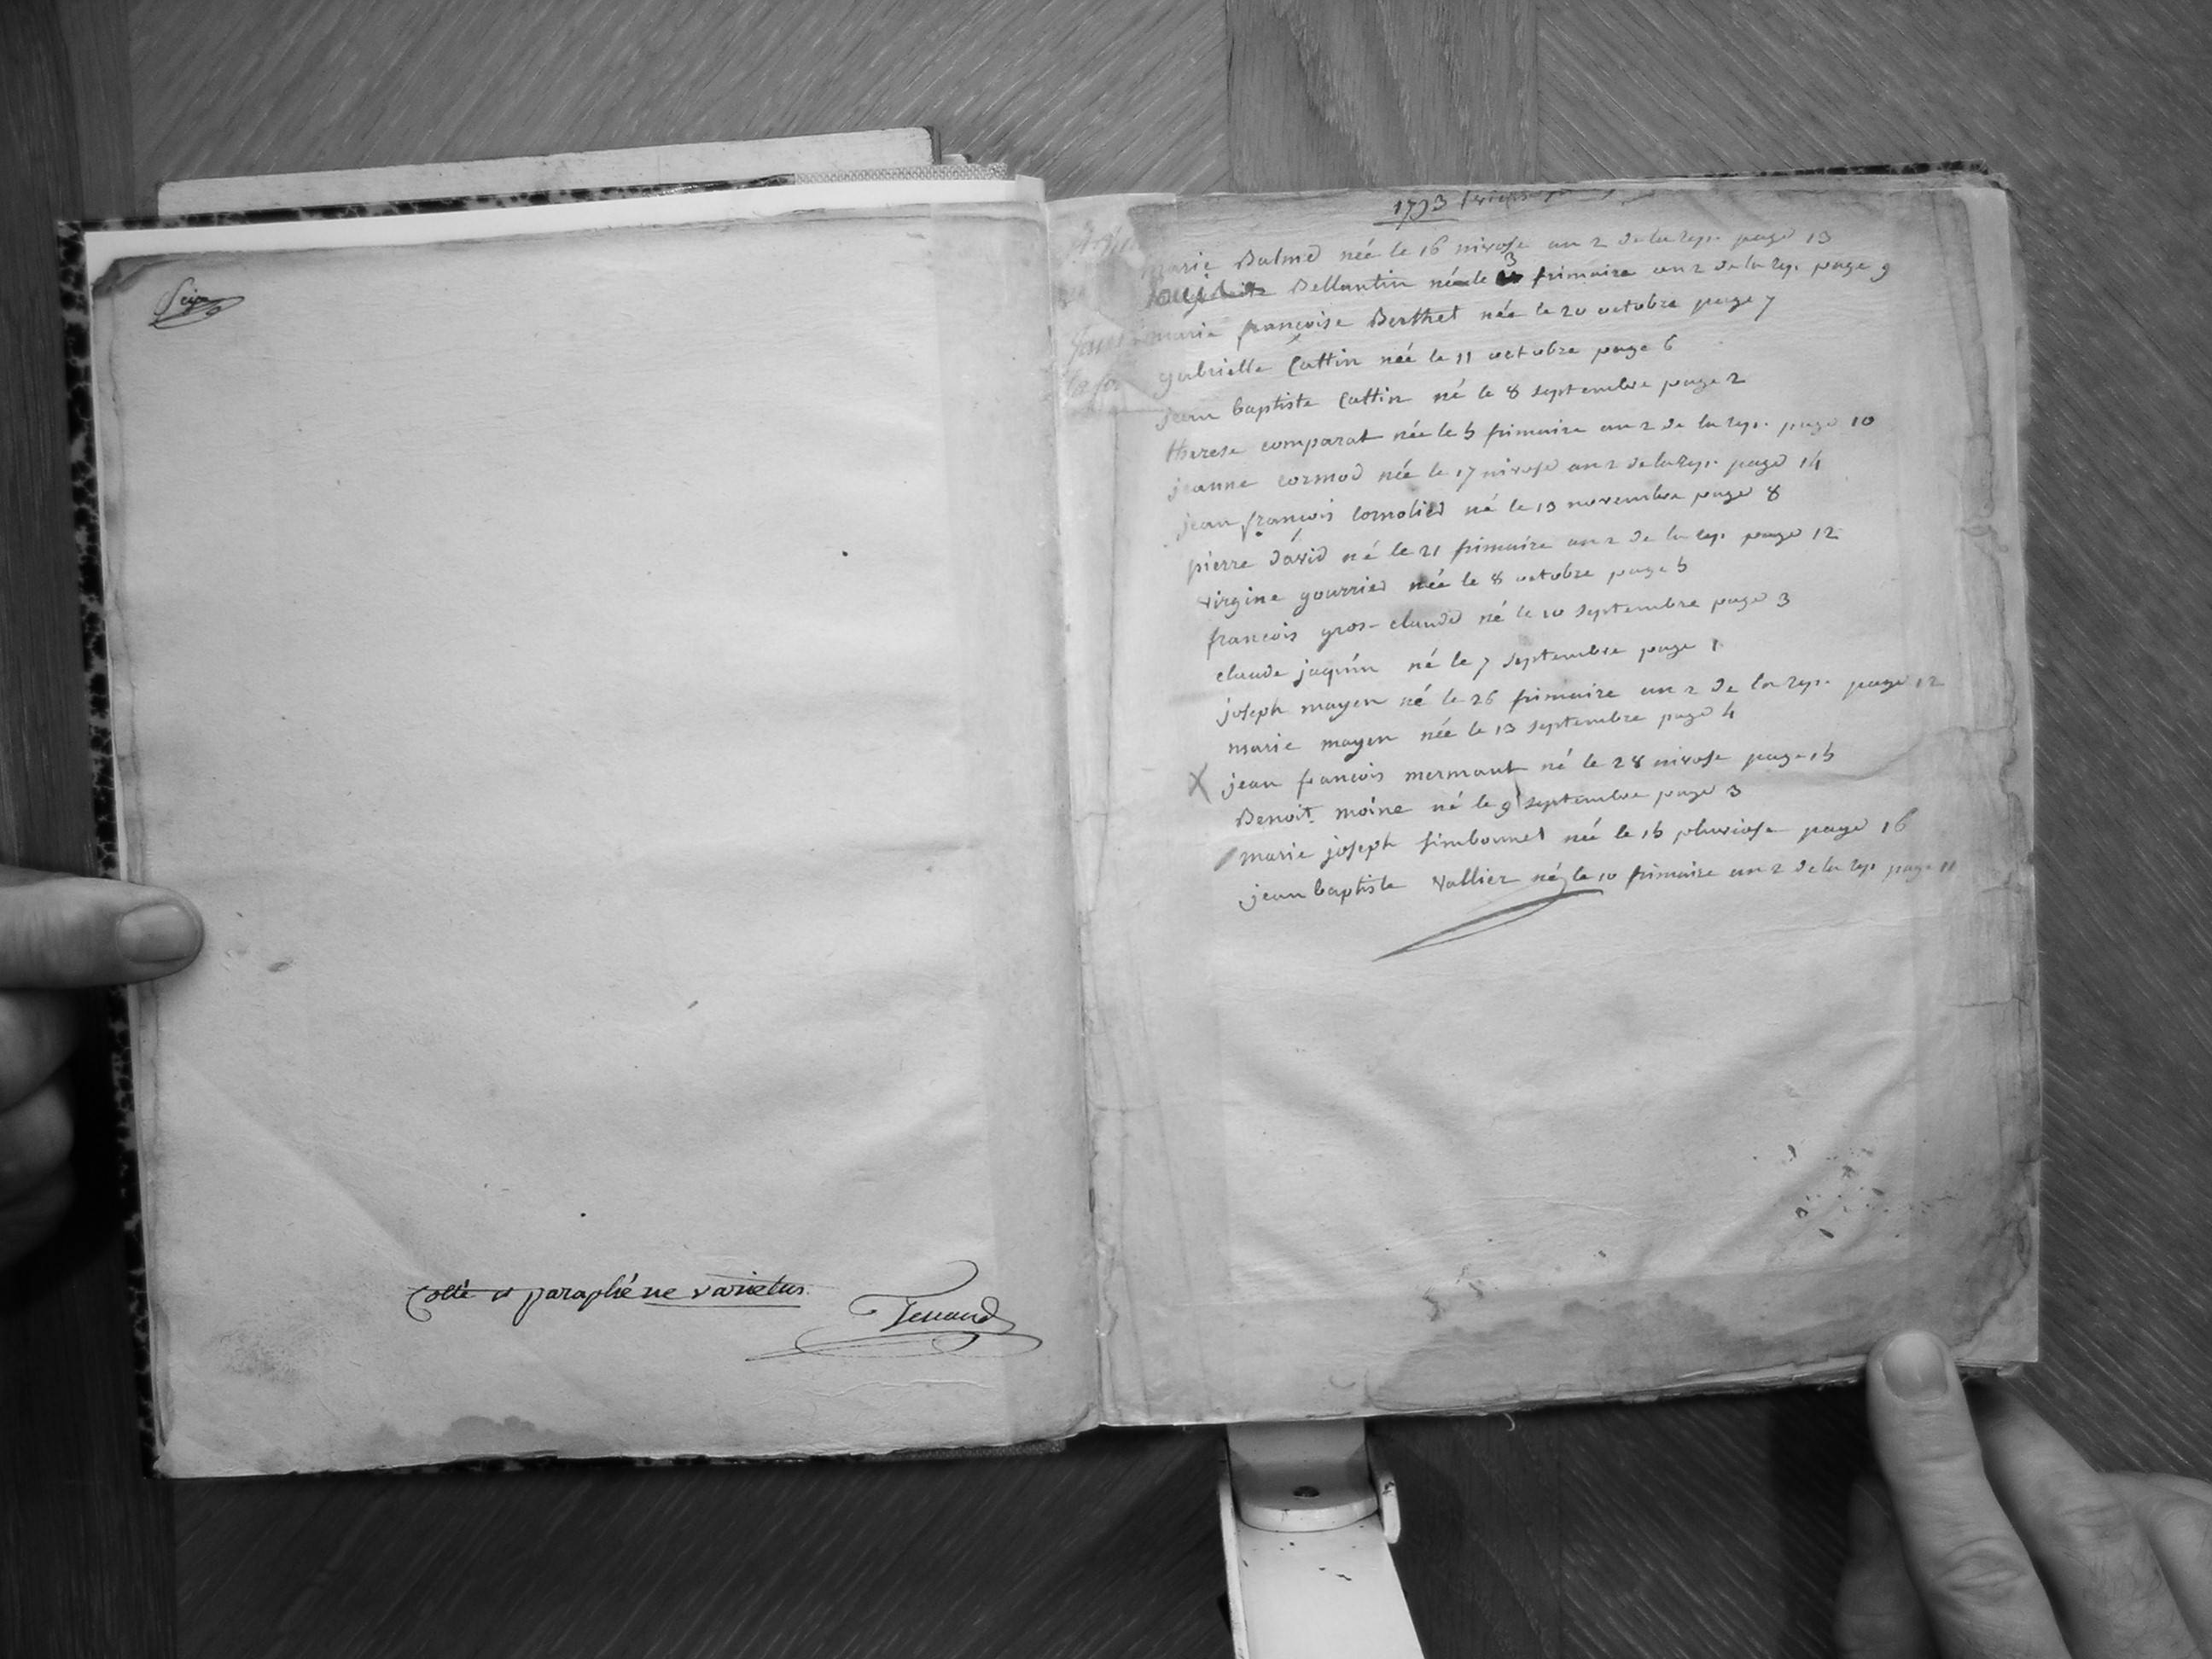 Seize
Cotté et paraphé ne varietur
Tenand
1793
marie Balme née le 16 nivose an 2 de la rep. page 13
Louise Bellantin née le 3 frimaire an 2 de la rep. page 9
marie françoise Berthet née le 20 octobre page 7
gabrielle Cattin née le 11 octobre page 6
jean baptiste Cattin né le 8 septembre page 2
therese comparat née le 5 frimaire an 2 de la rep. page 10
jeanne cormod née le 17 nivose an 2 de la rep. page 14
jean françois cornolied né le 13 novembre page 8
pierre david né le 21 frimaire an 2 de la rep. page 12
virgine gourried née le 8 octobre page 5
francois gros-claude né le 10 septembre page 3
claude jaquin né le 7 septembre page 1
joseph mayen né le 26 frimaire an 2 de la rep. page 12
marie mayen née le 13 septembre page 4
X jean francois mermant né le 28 nivose page 15
Benoit moine né le 9 septembre page 3
marie joseph simbonnet née le 15 pluviose page 16
jean baptiste Vallier né le 10 frimaire an 2 de la rep. page 11